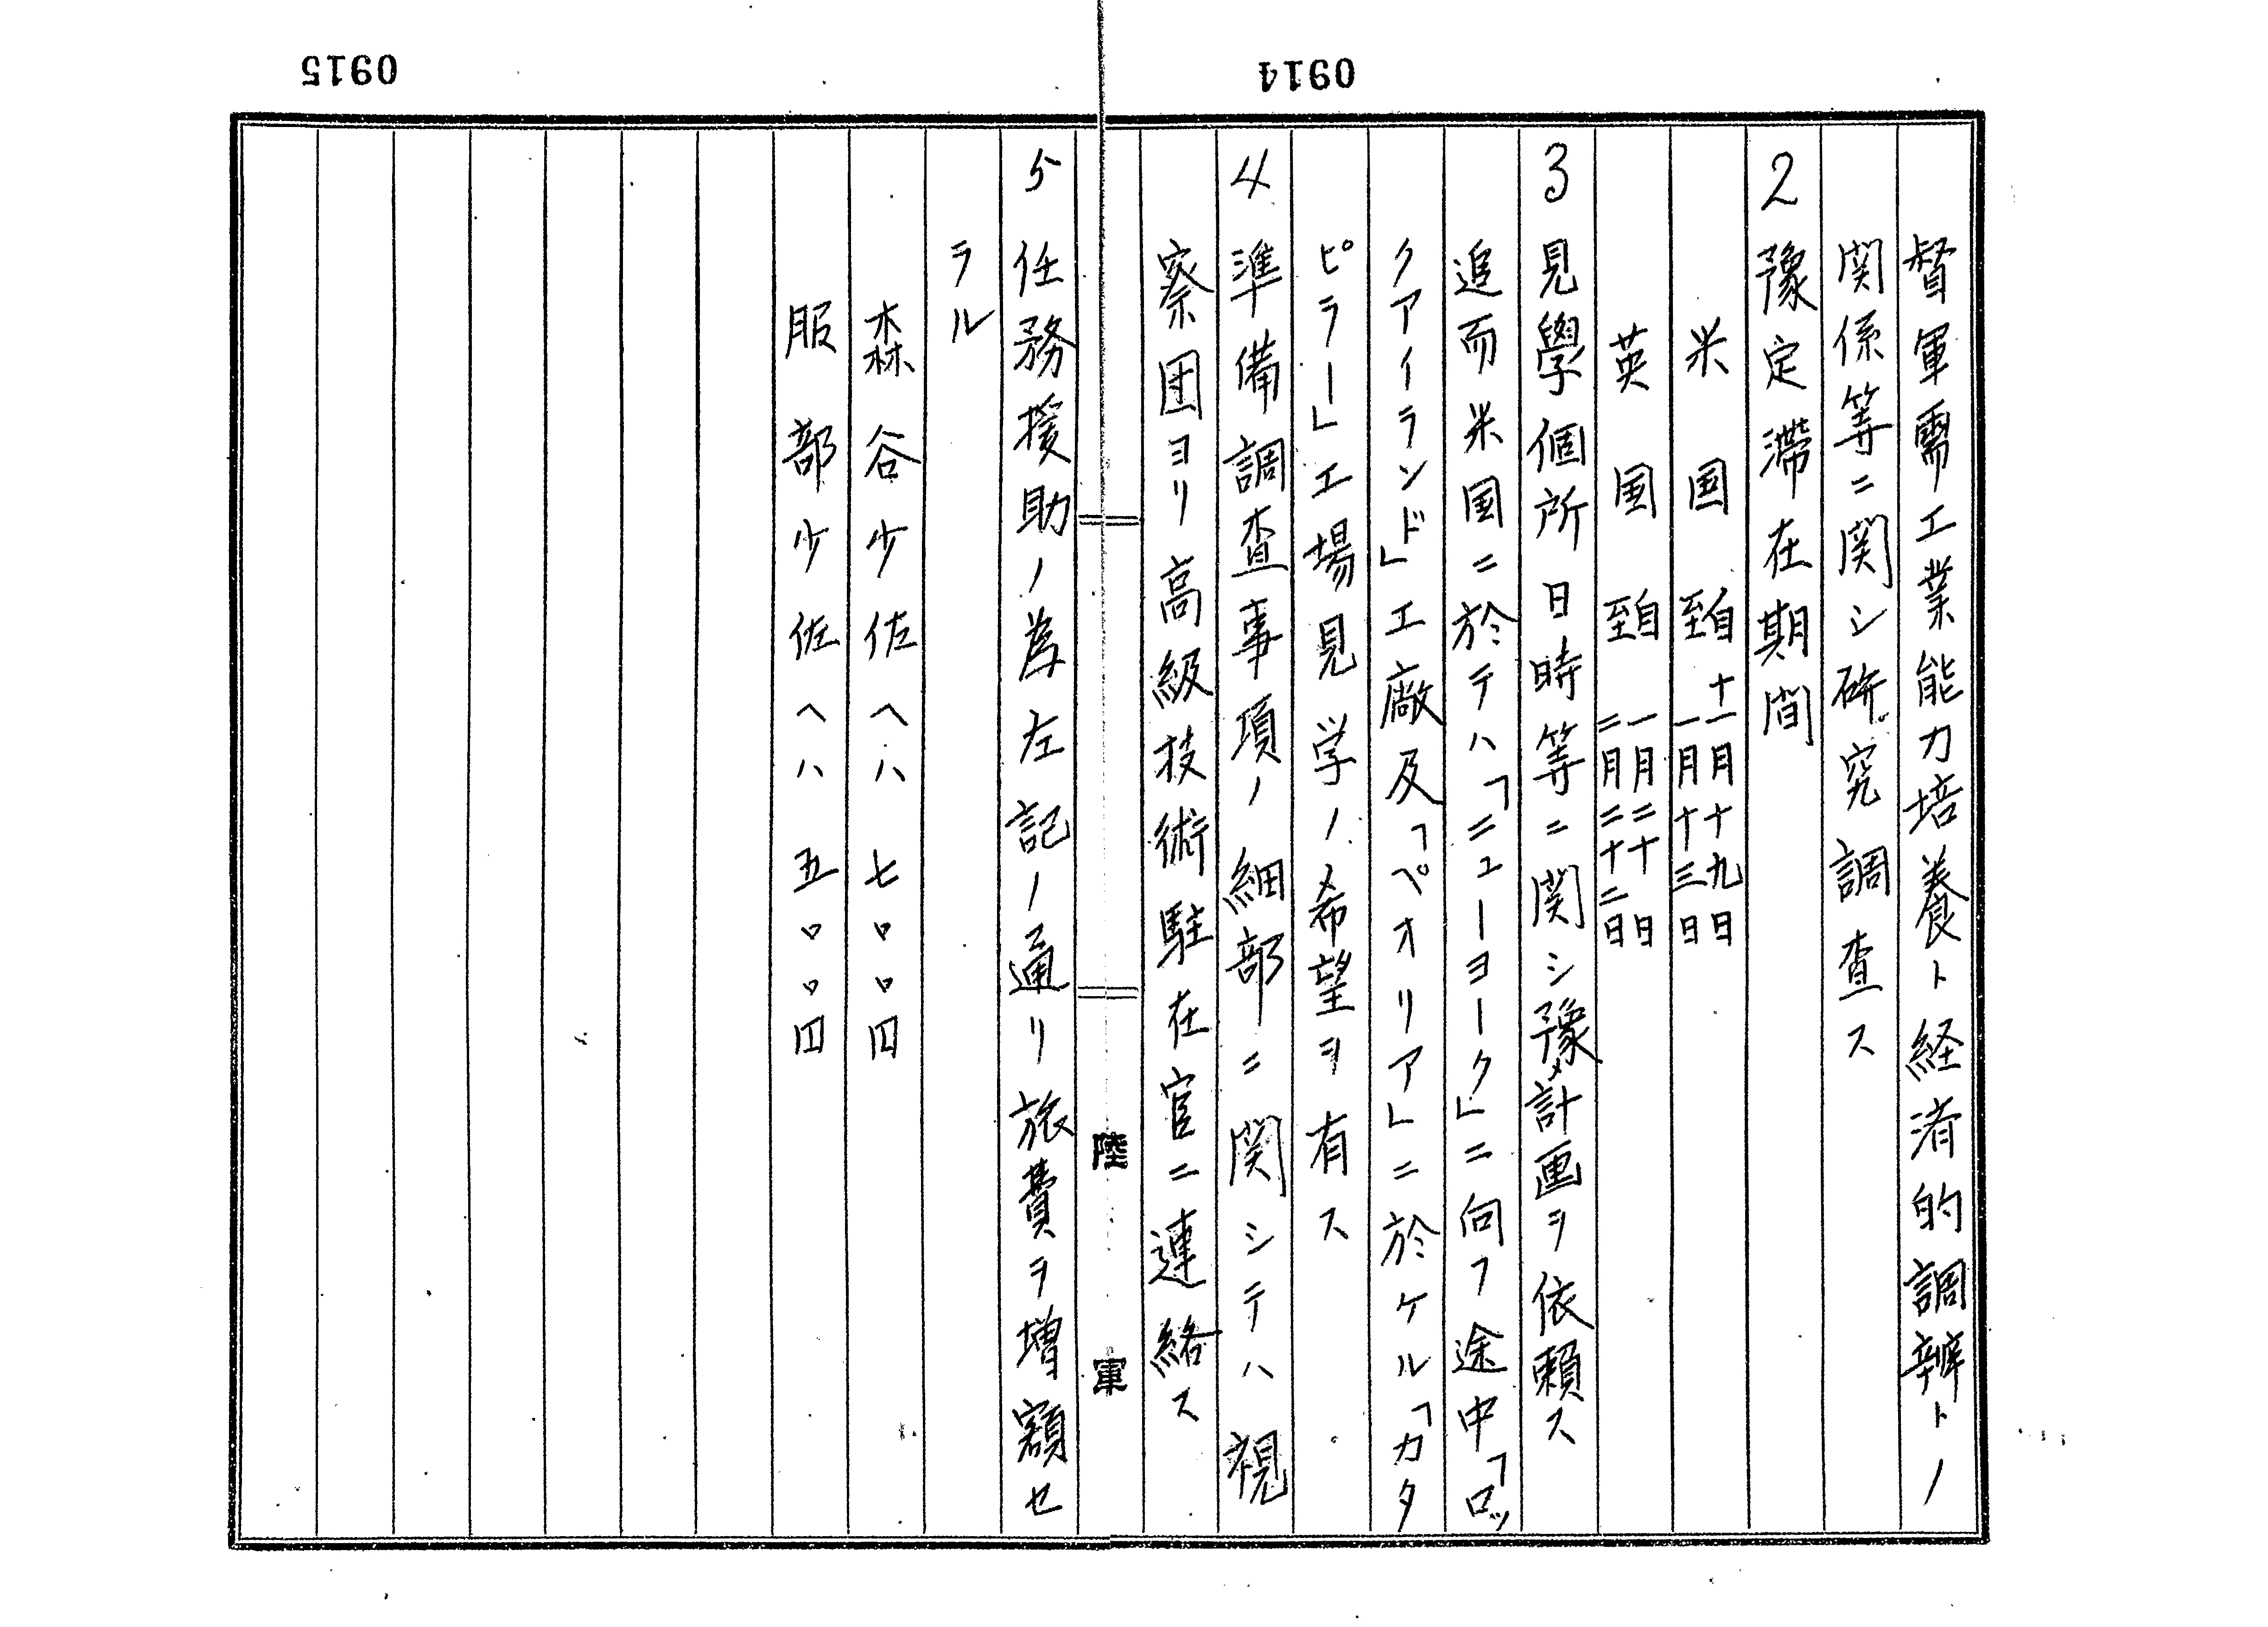 0914
督軍需工業能力培養ト経済的調辨トノ
関係等ニ関シ研究調査ス
2 豫定滞在期間
米国 自十一月十九日 至一月十三日
英国 自一月二十日 至二月二十二日
3 見學個所日時等ニ関シ豫メ計画ヲ依頼ス
追而米国ニ於テハ「ニューヨーク」ニ向フ途中「ロッ
クアイランド」工廠及「ペオリア」ニ於ケル「カタ
ピラー」工場見学ノ希望ヲ有ス
4 準備調査事項ノ細部ニ関シテハ視
察団ヨリ高級技術駐在官ニ連絡ス
陸軍
0915
5 任務援助ノ為左記ノ通リ旅費ヲ増額セ
ラル
森谷少佐ヘハ 七〇〇円
服部少佐ヘハ 五〇〇円